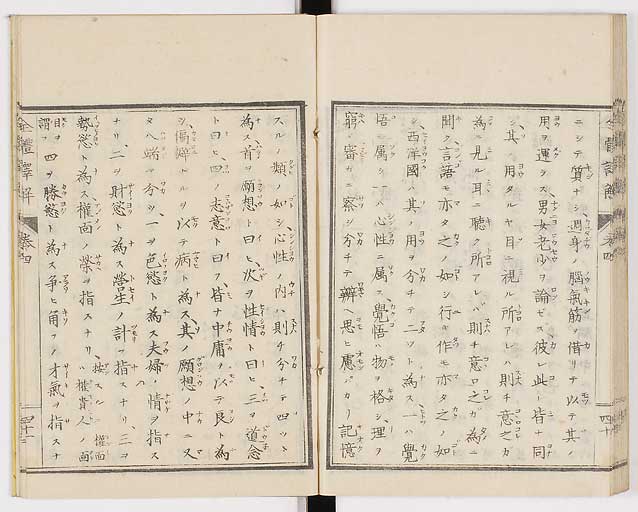 ニシテ質ナシ週身ノ腦氣筋ヲ借リナ以テ其ノ
用ヲ運ラス男女老少ヲ論ゼス彼レ此レ皆ナ同
シ其ノ用タルヤ目ニ視ル所アレハ則チ意之カ
為ニ見ル耳ニ聽ク所アレバ則チ意ロ之ガ為ニ
聞ク言語モ亦タ之ノ如シ行キ作モ亦タ之ノ如
シ西洋國ハ其ノ用ヲ分チテ二ツト為ス一ハ覺
悟ニ屬シ一ハ心性ニ属ス覺悟ハ物ヲ格シ理ヲ
窮メ審カニ察シ分チテ辨ヘ思ヒ慮バカリ記憶
スルノ類ノ如シ心性ノ内ハ則チ分チテ四ツト
為ス首ヲ願想ト曰ヒ次ヲ性情ト曰ヒ三ヲ道念
ト曰ヒ四ヲ志意ト曰フ皆ナ中庸ヲ以テ良ト為
シ偏僻ヲ以テ病ト為ス其ノ願想ノ中ニ又
タ八端ヲ分ツ一ヲ色慾ト為ス夫婦ノ情ヲ指ス
ナリ二ヲ財慾ト為ス營生ノ計ヲ指スナリ三ヲ
勢慾ト為ス權面ノ榮ヲ指スナリ
按スルニ權面ハ權貴人面目ヲ謂フ
四ヲ勝慾ト為ス爭ヒ角フノ才氣ヲ指スナ
全體譯解
卷四
四十
全體譯解
卷四
四十一